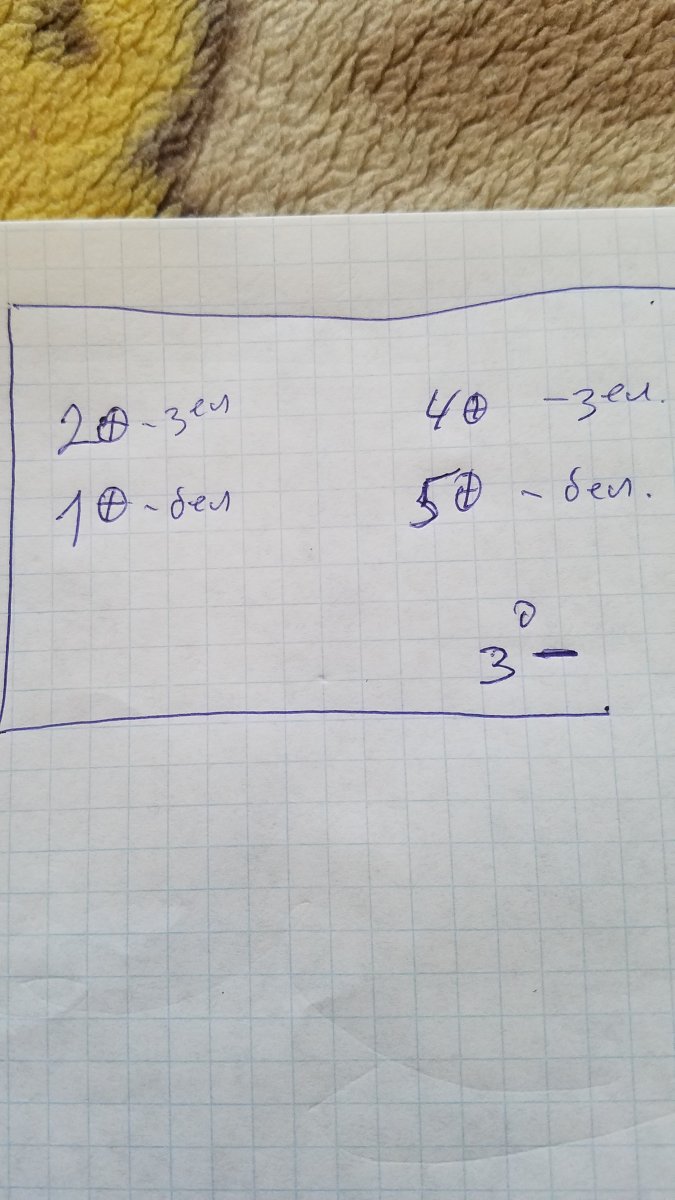 2⊕ - зел
4⊕ - зел.
1⊕ - бел
5⊕ - бел.
3 -